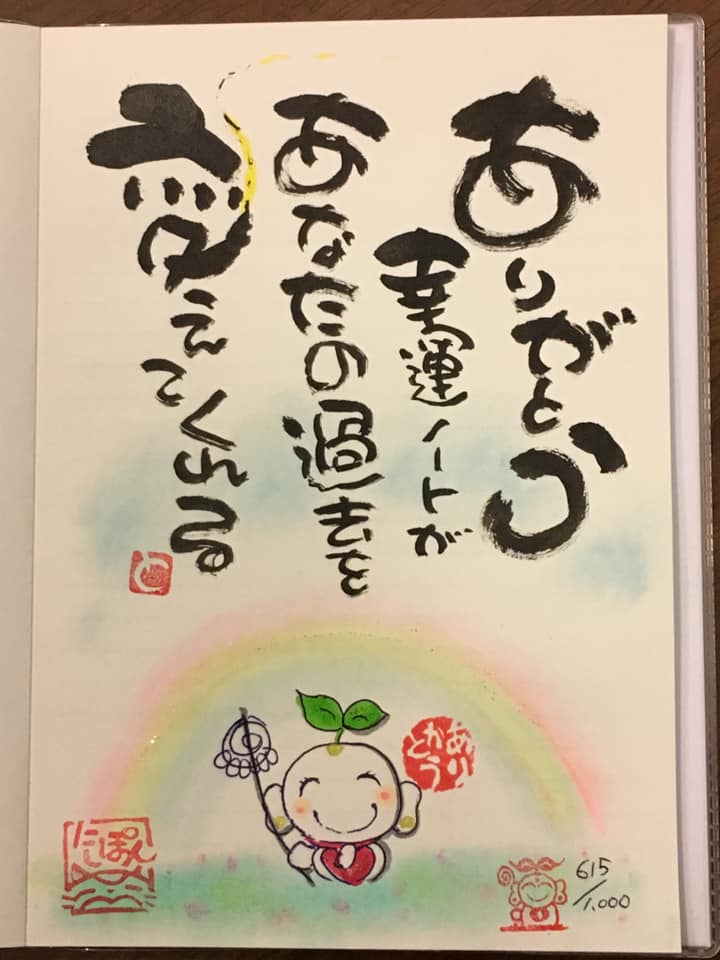 ありがとう
幸運ノートが
あなたの過去を
変えてくれる
と
ありがとう
615/1,000